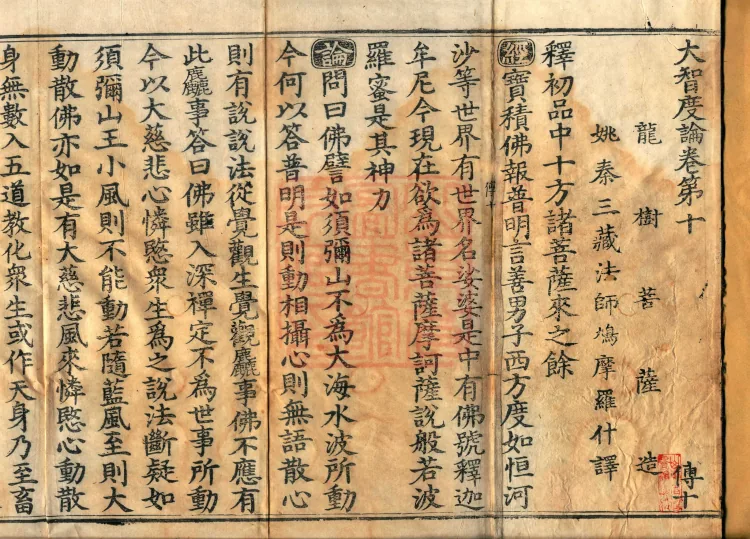 大智度論卷第十
傅十
龍樹菩薩造
姚秦三藏法師鳩摩羅什譯
釋初品中十方諸菩薩來之餘
經寶積佛報普明言善男子西方度如恒河
傅十
沙等世界有世界名娑婆是中有佛號釋迦
牟尼今現在欲為諸菩薩摩訶薩說般若波
羅蜜是其神力
論問曰佛譬如須彌山不為大海水波所動
今何以答普明是則動相攝心則無語散心
則有說說法從覺觀生覺觀麤事佛不應有
此麤事答曰佛雖入深禪定不為世事所動
今以大慈悲心憐愍眾生為之說法斷疑如
須彌山王小風則不能動若隨藍風至則大
動散佛亦如是有大慈悲風來憐愍心動散
身無數入五道教化眾生或作天身乃至畜